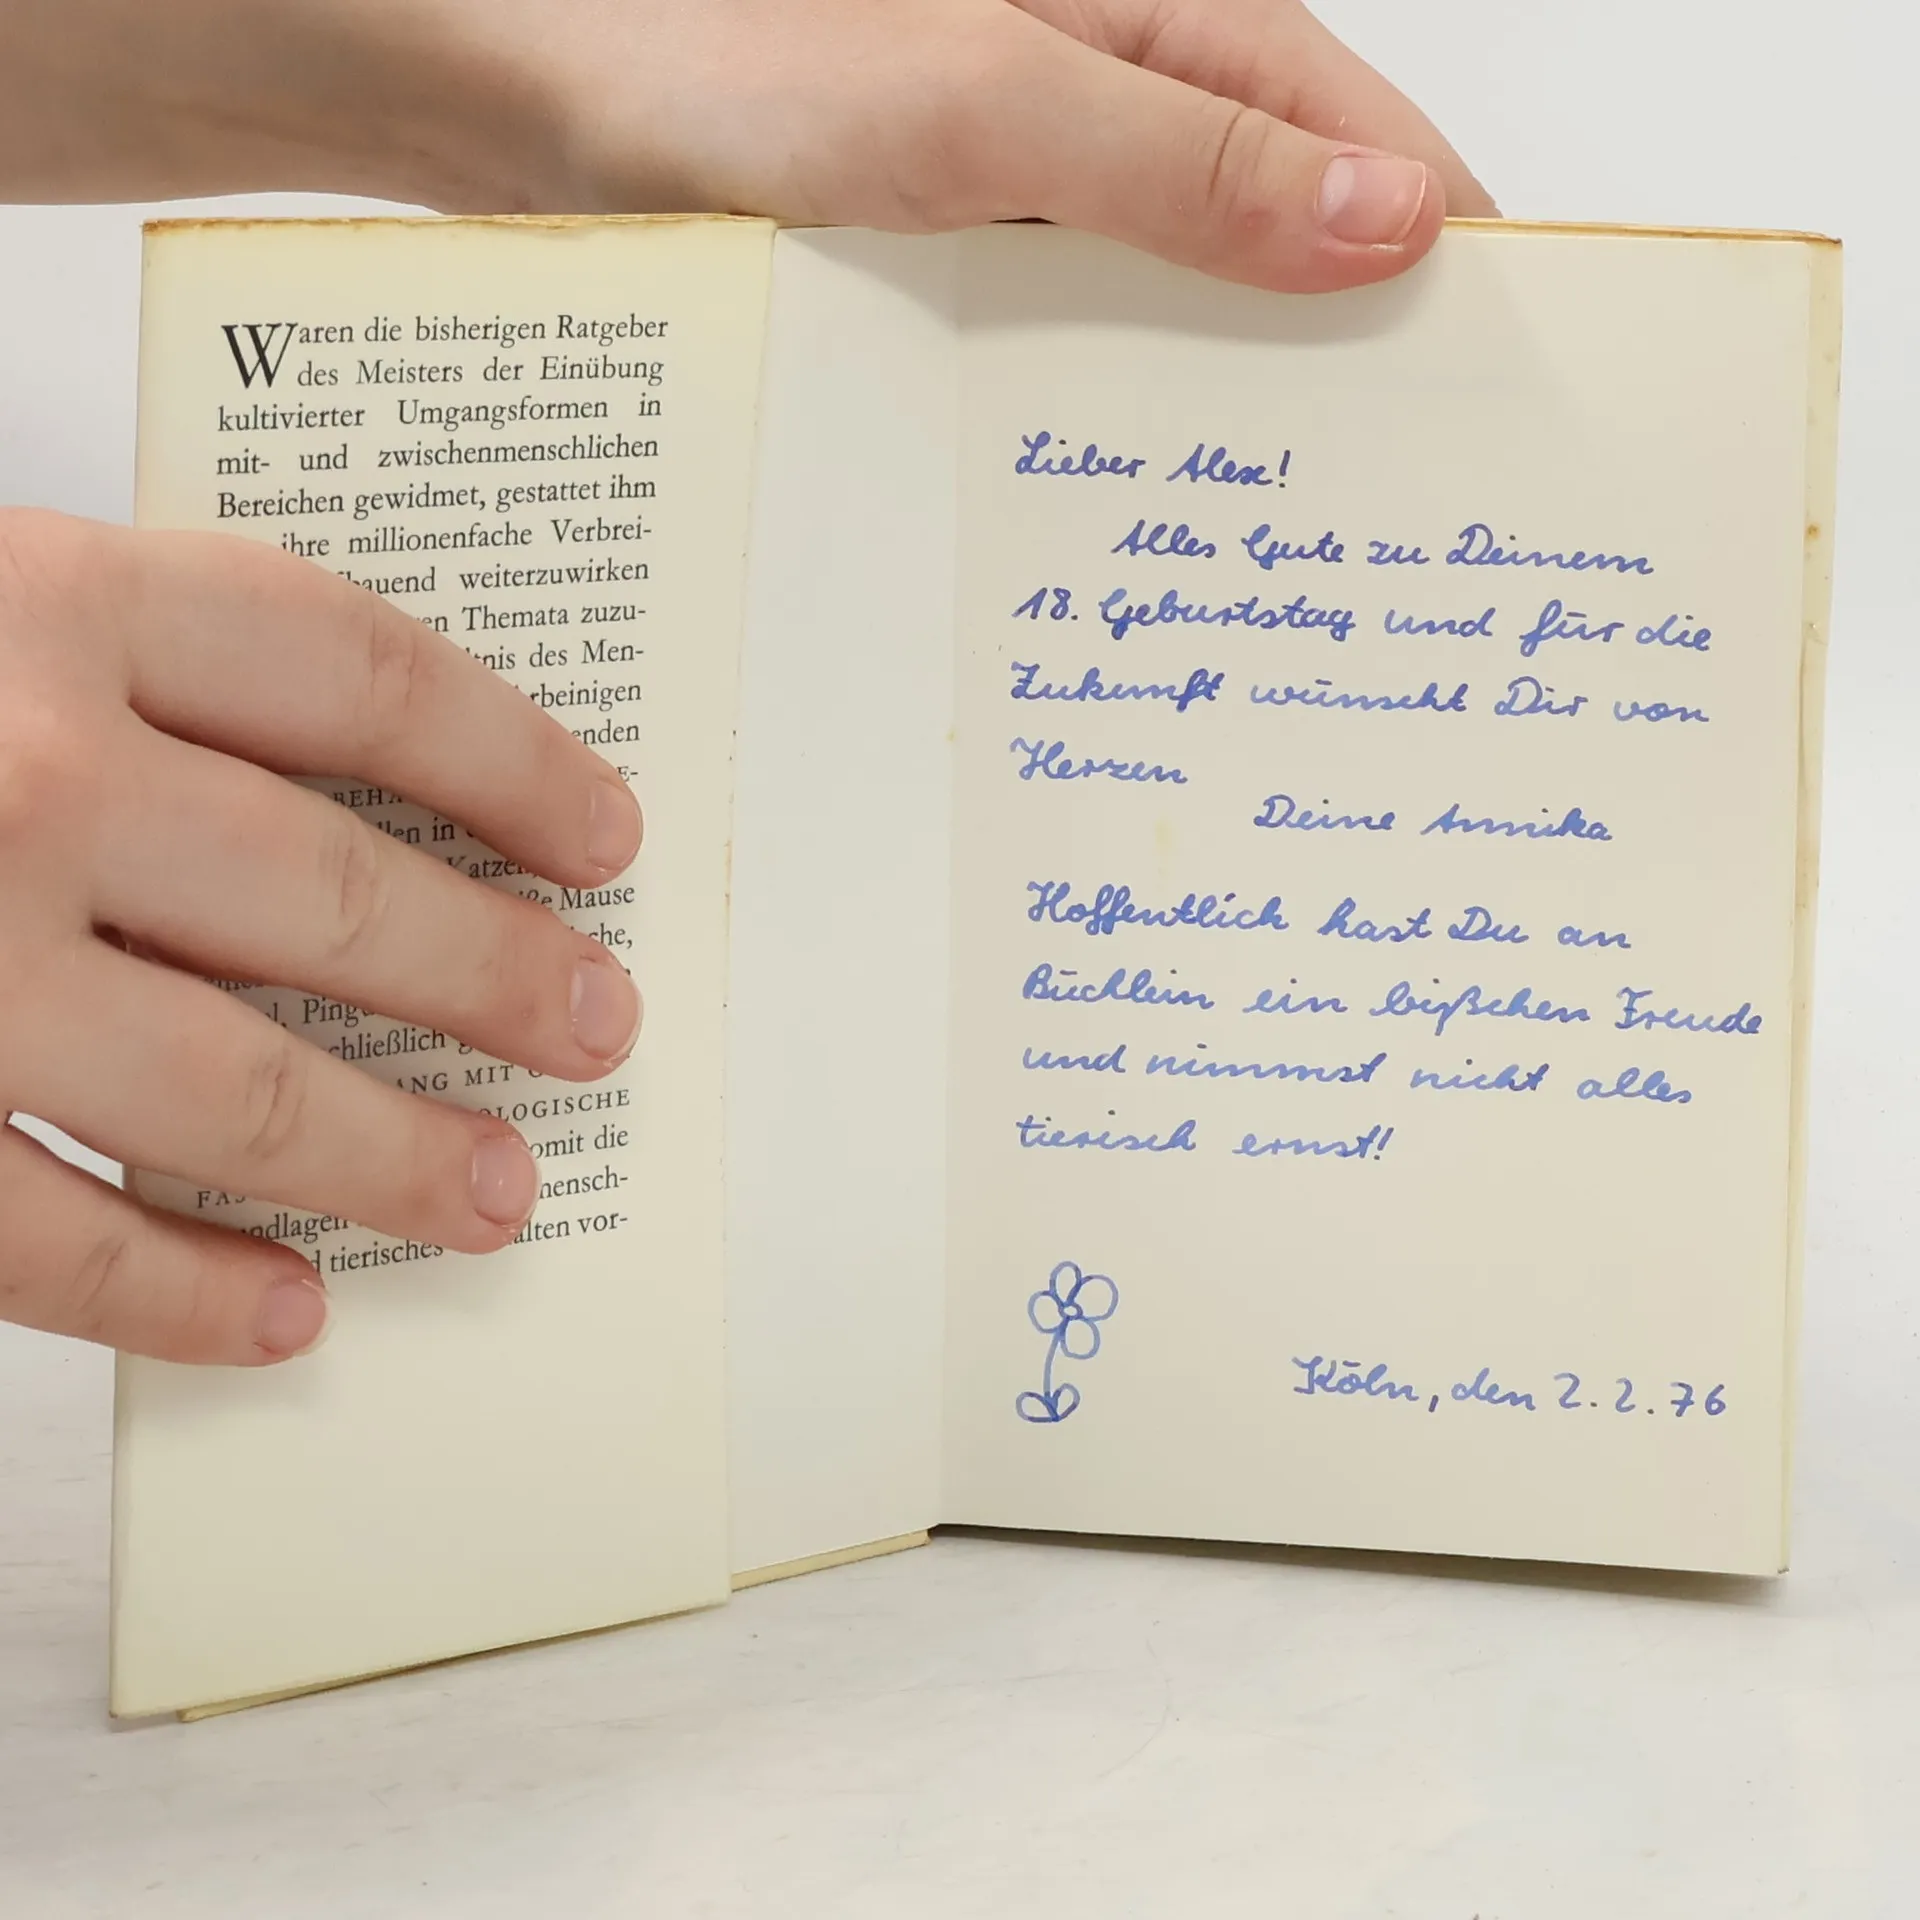 Waren die bisherigen Ratgeber
des Meisters der Einübung
kultivierter Umgangsformen in
mit- und zwischenmenschlichen
Bereichen gewidmet, gestattet ihm
ihre millionenfache Verbrei-
bauend weiterzuwirken
en Themata zuzu-
tnis des Men-
rbeinigen
enden
E-
BEHA
llen in
Katzen,
ße Mause
che,
l, Pingu
chließlich g
ANG MIT
OLOGISCHE
omit die
FAS mensch-
ndlagen
d tierisches alten vor-
Lieber Alex!
Alles Gute zu Deinem
18. Geburtstag und für die
Zukunft wünscht Dir von
Herzen
Deine Annika
Hoffentlich hast Du an
Büchlein ein bißchen Freude
und nimmst nicht alles
tierisch ernst!
Köln, den 2.2.76